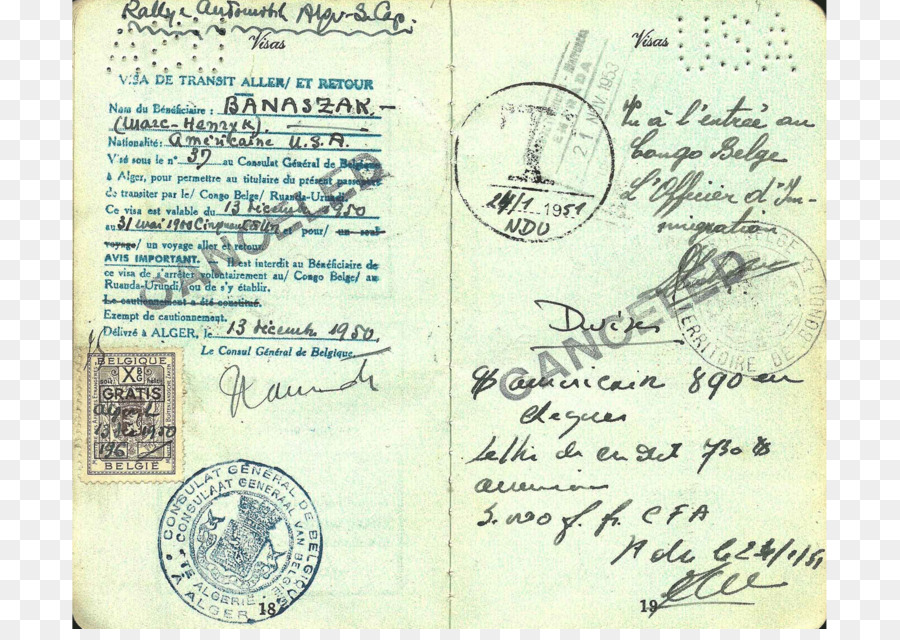 Rallye Automobile Alger-Le Cap.
Visas
VISA DE TRANSIT ALLER/ ET RETOUR
Nom du Bénéficiaire : BANASZAK -
(Marc-Henryk).
Nationalité : Américaine U.S.A.
Visé sous le n° 37 au Consulat Général de Belgique
à Alger, pour permettre au titulaire du présent passeport
de transiter par le/ Congo Belge/ Ruanda-Urundi.
Ce visa est valable du 13 décembre 1950
au 31 mai 1900 Cinquante et Un et pour/ un seul
voyage/ un voyage aller et retour
AVIS IMPORTANT. Il est interdit au Bénéficiaire de
ce visa de s'arrêter volontairement au/ Congo Belge/ au
Ruanda-Urundi/ ou de s'y établir.
Le cautionnement a été constitué.
Exempt de cautionnement.
Délivré à ALGER, le 13 décembre 1950.
Le Consul Général de Belgique,
CANCELED
BELGIQUE
X BG
GRATIS
Alger
13 déc 1950
196
BELGIË
CONSULAT GÉNÉRAL DE BELGIQUE
CONSULAAT GENERAAL VAN BELGIE
ALGERIE
ALGER
18
Visas
USA
ENTRADA
21 NOV. 1953
T
24/1 1951
NDU
Vu à l'entrée au
Congo Belge
L'Officier d'Im-
migration
CANCELED
TERRITOIRE DE BONDO
BELGE
Devises
$ américain 890 en
cheques
lettre de credit 730 $
americain
5.000 f. fr. CFA
N du le 24/1/51
19